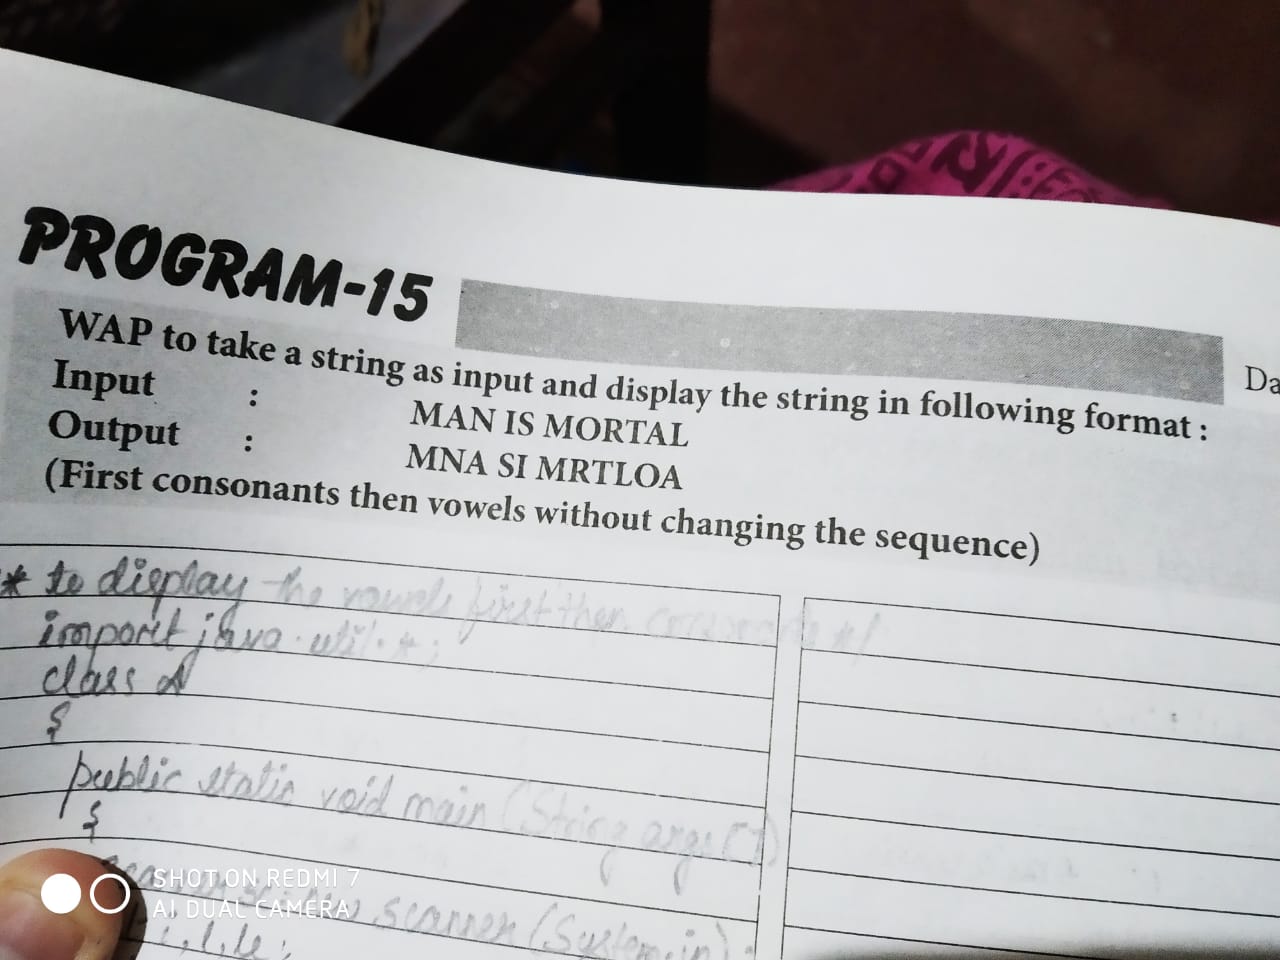 PROGRAM-15
Da
WAP to take a string as input and display the string in following format :
Input : MAN IS MORTAL
Output : MNA SI MRTLOA
(First consonants then vowels without changing the sequence)
* to display the vowels first then */
import java.util.*;
class A
{
public static void main (String args[])
{
new scanner (System.in);
SHOT ON REDMI 7
AI DUAL CAMERA